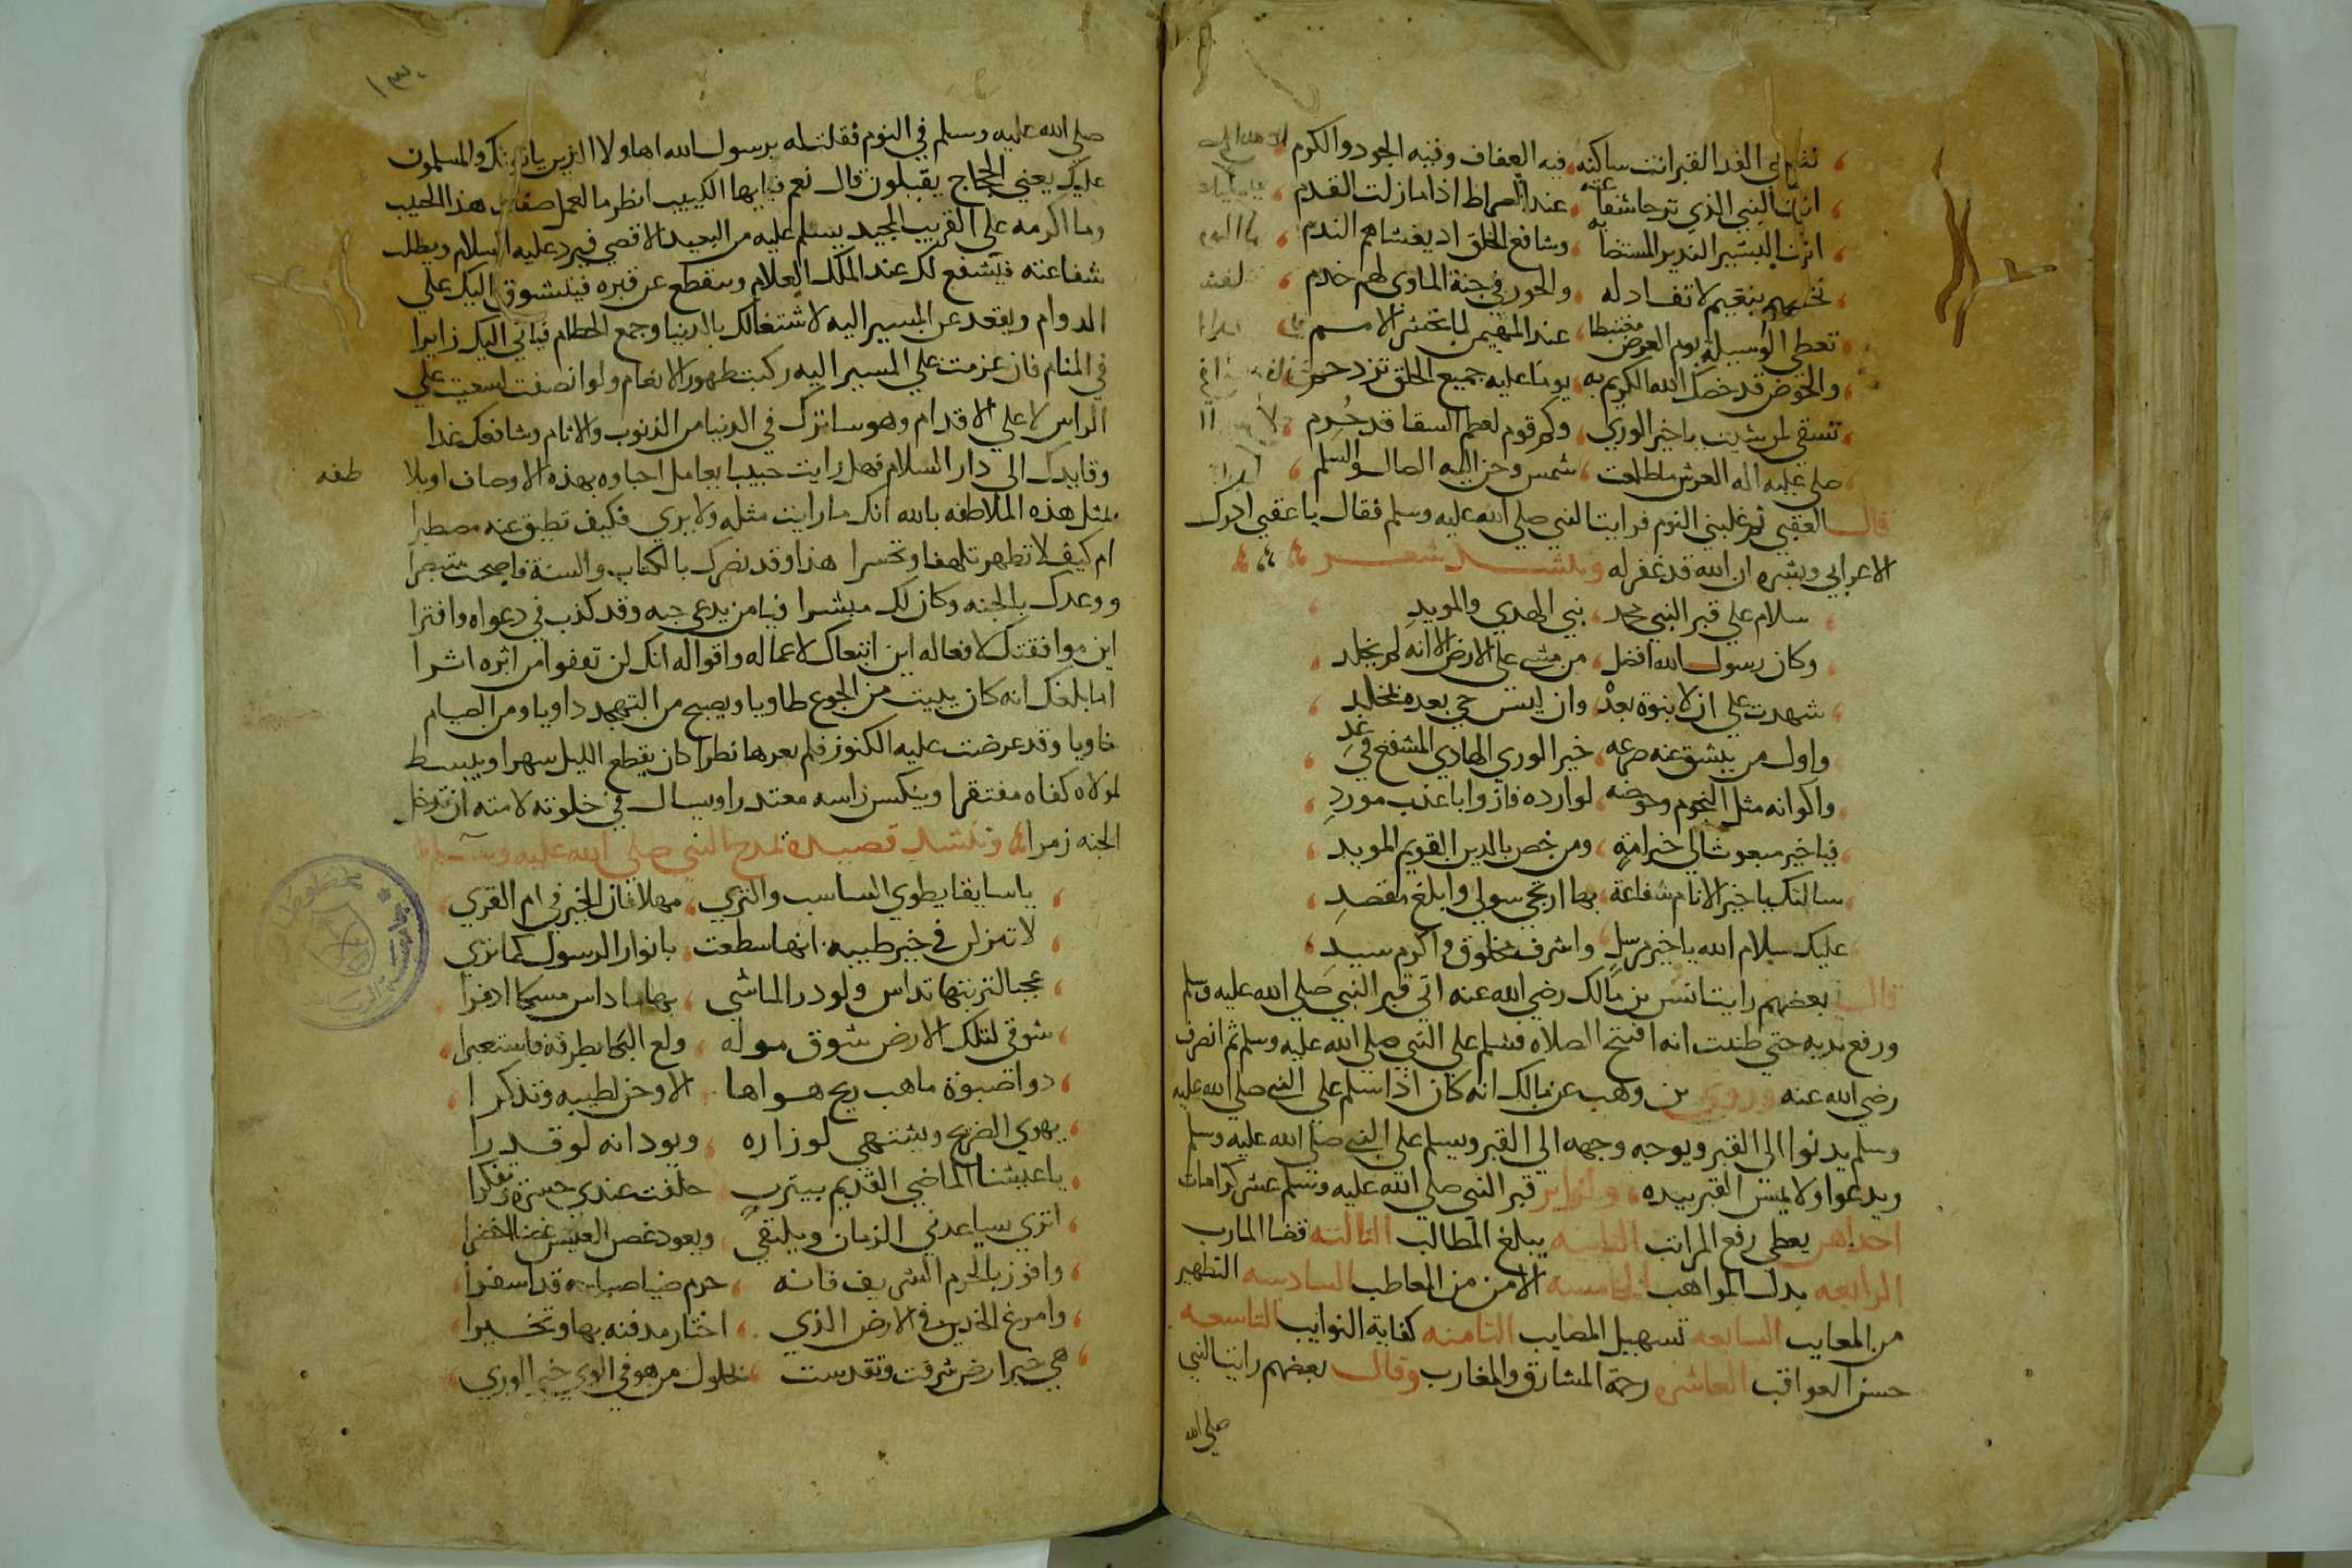 نفسي الفدا لقبر انت ساكنه فيه العفاف وفيه الجود والكرم
انت النبي الذي ترجا شفاعته عند الصراط اذا ما زلت القدم
انت البشير النذير المستضا به وشافع الخلق اذ يغشاهم الندم
تخصهم بنعيم لا نفاد له والحور في جنة الماوى لهم خدم
تعطى الوسيلة يوم العرض مغتبطا عند المهيمن لما تحشر الامم
والحوض قد خصك الله الكريم به يوما عليه جميع الخلق تزدحم
تسقي لمن شيت يا خير الوري وكم قوم لعظم الشقا قد حُرم
صلى عليه اله العرش ما طلعت شمس وحن اليه الضال والسلم
قال العقبي ثم غلبني النوم فرايت النبي صلي الله عليه وسلم فقال يا عقبي ادرك
الاعرابي وبشره ان الله قد غفر له وينشد شعر
سلام علي قبر النبي محمد نبي الهدي والمويد
وكان رسول الله افضل من مشى على الارض الا انه لم يخلد
شهدت علي ان لا نبوة بعده وان ليس حي بعده بمخلد
واول من ينشق عنه ضريحه خير الوري الهادي المشفع في غد
واكوانه مثل النجوم وحوضه لوارده فازوا باعذب مورد
فيا خير مبعوث الي خير امة ومن خص بالدين القويم المويد
سالتك يا خير الانام شفاعة بها ارتجي سولي وابلغ مقصد
عليك سلام الله يا خير مرسل واشرف مخلوق واكرم سيد
قال بعضهم رايت انس بن مالك رضي الله عنه اتي قبر النبي صلي الله عليه وسلم
ورفع يديه حتي ظننت انه افتتح الصلاه فسلم علي النبي صلي الله عليه وسلم ثم انصرف
رضي الله عنه وروي بن وهب عن مالك انه كان اذا سلم علي النبي صلي الله عليه
وسلم يدنوا الي القبر ويوجه وجهه الي القبر ويسلم على النبي صلي الله عليه وسلم
ويدعوا ولا يمس القبر بيده ولزاير قبر النبي صلي الله عليه وسلم عشر كرامات
احداهن يعطي رفع المراتب الثانيه يبلغ المطالب الثالثه قضا المارب
الرابعه بدل المواهب الخامسه الامن من المعاطب السادسه التطهير
من المعايب السابعه تسهيل المصايب الثامنه كفاية النوايب التاسعه
حسن العواقب العاشره رحمة المشارق والمغارب وقال بعضهم رايت النبي
صلى الله
صلى الله عليه وسلم في النوم فقلت له يرسول الله اهاولا الذين ياتونك والمسلمون
عليك يعني الحجاج يقبلون قال نعم فيا ايها الكييب انظر ما لعمل هذا الحبيب
وما اكرمه علي القريب المجيد يسلم عليه من البعيد الاقصي فيرد عليه السلام ويطلب
شفاعته فيشفع لك عند الملك العلام وينقطع عن قبره فيتشوق اليك علي
الدوام ويقعد عن المسير اليه لاشتغالك بالدنيا وجمع الحطام فياتي اليك زايرا
في المنام فان عزمت علي المسير اليه ركبت ظهور الانعام ولو انصفت لسعيت علي
الراس لا علي الاقدام وهو ساترك في الدنيا من الذنوب والاثام وشافعك غدا
وقايدك الى دار السلام فهل رايت حبيبا يعامل احباوه بهذه الاوصاف او يلا
طفه
بمثل هذه الملاطفه بالله انك ما رايت مثله ولا يري فكيف تطيق عنه مصطبرا
ام كيف لا تظهر تلهفا وتحسرا هذا وقد بصرك بالكتاب والسنة فاصبحت متبصرا
ووعدك بالجنه وكان لك مبشرا فيا من يدعي حبه وقد كذب في دعواه وافترا
اين موافقتك لافعاله اين اتباعك لاعماله واقواله انك لن تقفوا من اثره اشرا
اما بلغك انه كان يبيت من الجوع طاويا ويصبح من التهجد داويا ومن الصيام
خاويا وقد عرضت عليه الكنوز فلم يعرها نظرا كان يقطع الليل سهرا ويبسط
لمولاه كفاه مفتقرا وينكس راسه معتذرا ويسال في خلوته لامته ان تدخل
الجنه زمرا وننشد قصيدة تمدح النبي صلى الله عليه وسلم
يا سايقا يطوي السباسب والثري مهلا فان الخير في ام القري
لا تنزلن في غير طيبه انها سطعت بانوار الرسول كما تري
عجبا لتربتها تداس ولو در الماشي بها ما داس مسكا اذفرا
شوقي لتلك الارض شوق موله ولع البكا بطرفه فاستعبرا
دواصبوة ما هب ريح هواها الا وحن لطيبه وتذكرا
يهوي الضريح ويشتهي لو زاره ويود انه لو قدرا
يا عيشنا الماضي القديم بيثرب خلفت عندي حسرة وتفكرا
اتري يساعدني الزمان ونلتقي ويعود غصن العيش غضا اخضرا
وافوز بالحرم الشريف فانه حرم ضيا صباحه قد اسفرا
وامرغ الخدين في الارض الذي اختار مدفنه بها وتخيرا
هي خير ارض شرفت وتقدست بحلول من هو في الوري خير الوري